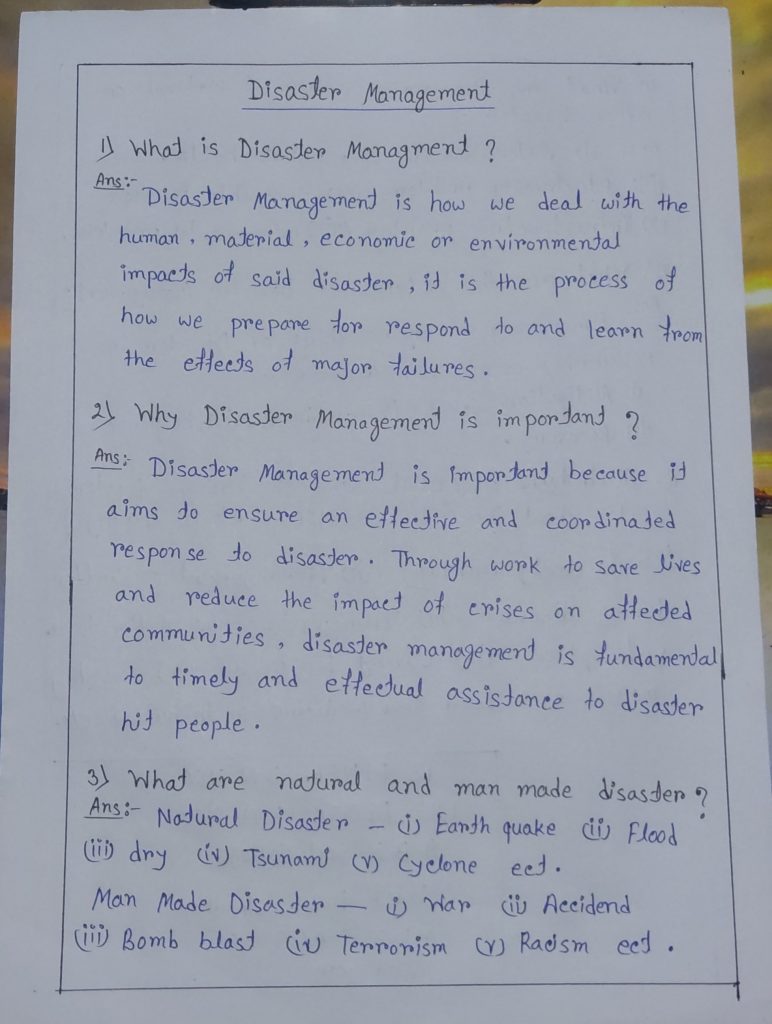 Disaster Management
1) What is Disaster Managment ?
Ans:-
Disaster Management is how we deal with the
human, material, economic or environmental
impacts of said disaster, it is the process of
how we prepare for respond to and learn from
the effects of major failures.
2) Why Disaster Management is important ?
Ans:- Disaster Management is important because it
aims to ensure an effective and coordinated
response to disaster. Through work to save lives
and reduce the impact of crises on affected
communities, disaster management is fundamental
to timely and effectual assistance to disaster
hit people.
3) What are natural and man made disaster ?
Ans:- Natural Disaster - (i) Earth quake (ii) Flood
(iii) dry (iv) Tsunami (v) Cyclone ect.
Man Made Disaster — (i) War (ii) Accidend
(iii) Bomb blast (iv) Terrorism (v) Racism ect.